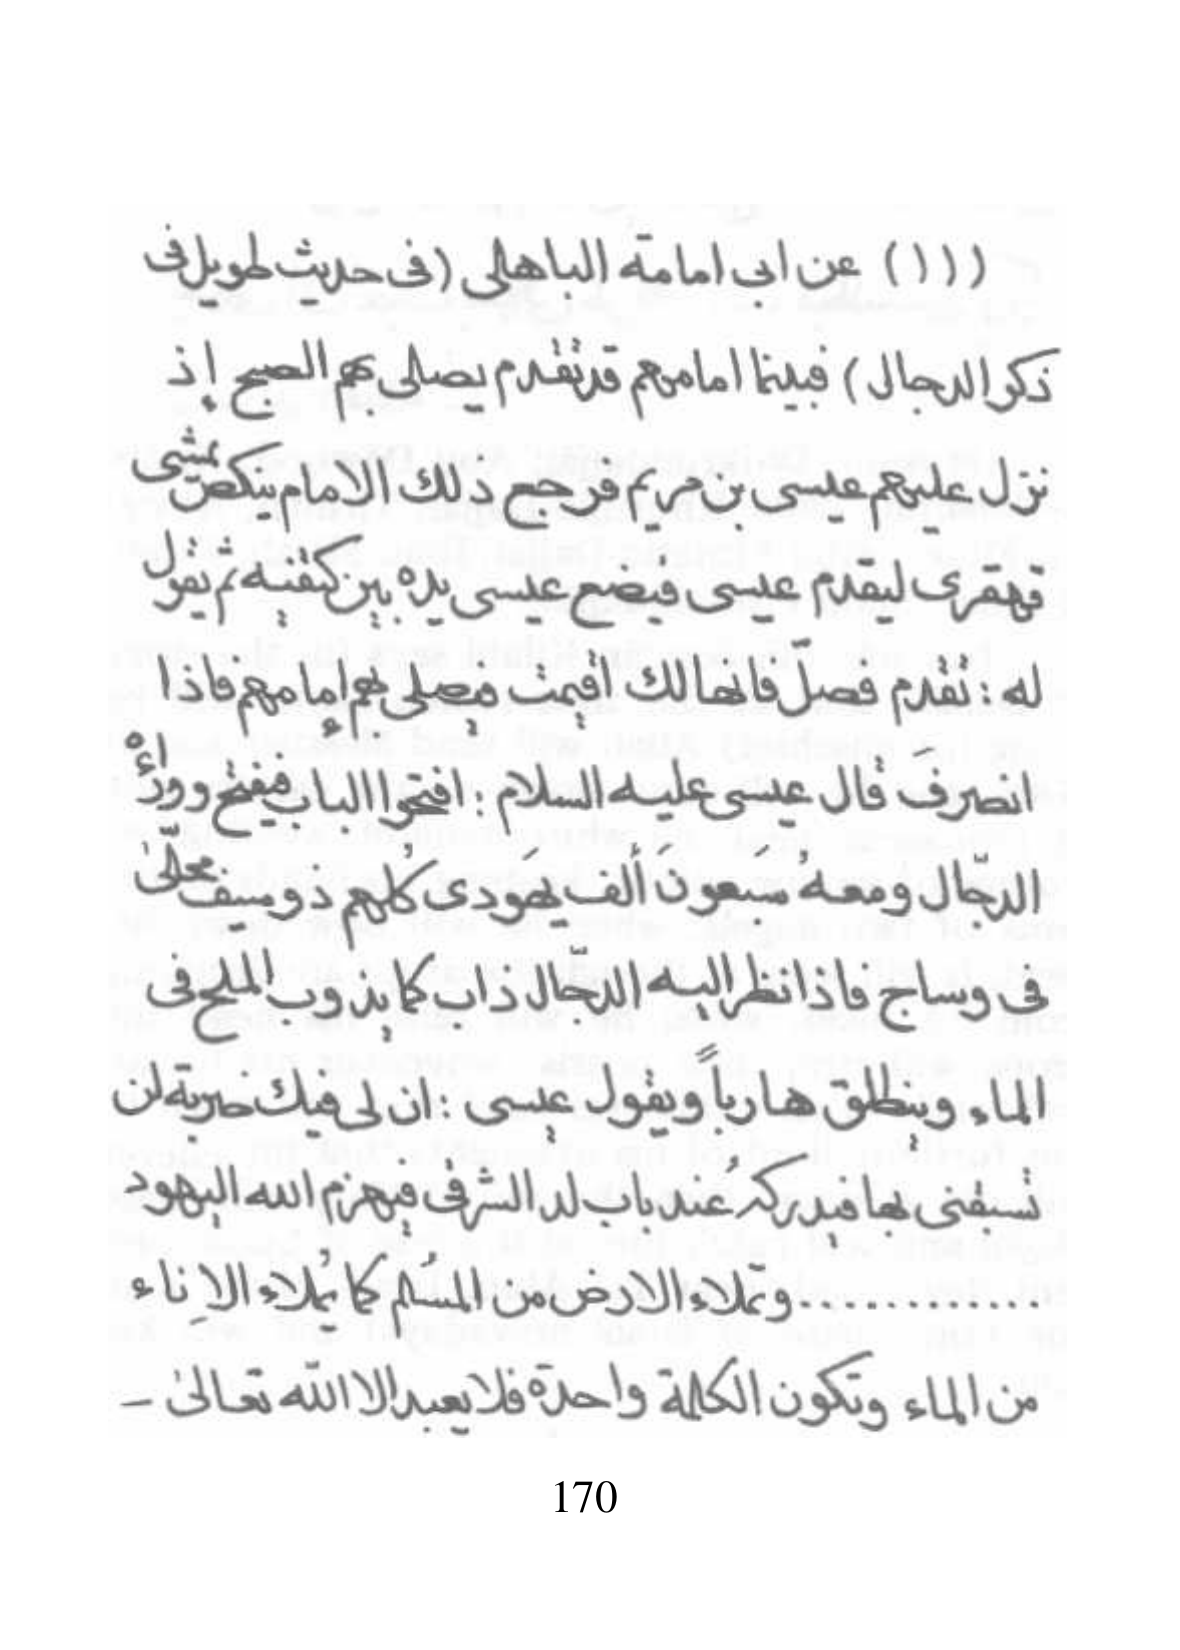 (١١) عن ابى امامة الباهلى (فى حديث طويل فى
ذكر الدجال) فبينما امامهم قد تقدم يصلى بهم الصبح إذ
نزل عليهم عيسى بن مريم فرجع ذلك الامام ينكص يمشى
قهقرى ليقدم عيسى فيضع عيسى يده بين كتفيه ثم يقول
له : تقدم فصلّ فانها لك أقيمت فيصلى بهم إمامهم فاذا
انصرفَ قال عيسى عليه السلام : افتحوا الباب فيفتح ووراءُه
الدجّال ومعهُ سَبعونَ ألفَ يَهودى كُلهم ذو سيف محلّىٰ
فى وساج فاذا نظر اليه الدجّال ذاب كما يذوب الملح فى
الماء وينطلق هارباً ويقول عيسى : ان لى فيك ضربة لن
تسبقنى بها فيدركہُ عند باب لد الشرقى فيهزم الله اليهود
............. وتملاء الارض من المسُلم كما يُملاء الاِناء
من الماء وتكون الكلمة واحدة فلا يعبد الا اللّه تعالىٰ -
170